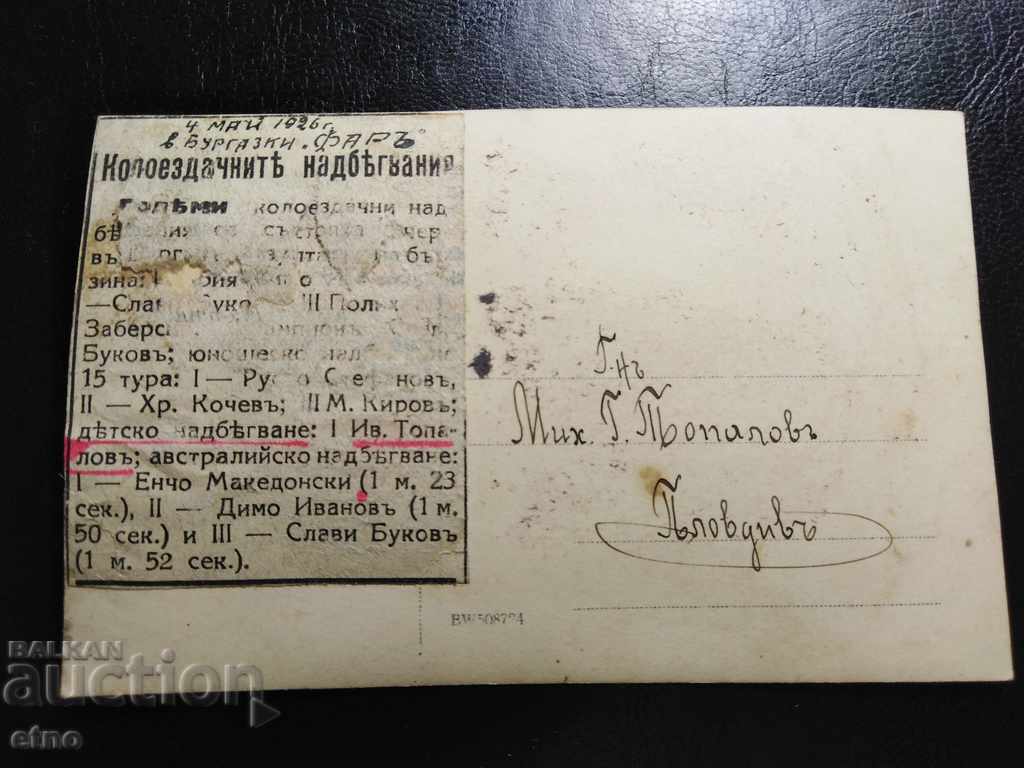 4 МАЙ 1926 г.
в. БУРГАЗКИ „ФАРЪ"
Колоездачнитѣ надбѣгвания
Голѣми колоездачни над
въ
зина:
—Слав III Полк
Буковъ;
15 тура: I — Русю Стефановъ,
II — Хр. Кочевъ; III М. Кировъ;
дѣтско надбѣгване: I Ив. Топа-
ловъ; австралийско надбѣгване:
I — Енчо Македонски (1 м. 23
сек.), II — Димо Ивановъ (1 м.
50 сек.) и III — Слави Буковъ
(1 м. 52 сек.).
Г-нъ
Мих. Г. Топаловъ
Пловдивъ
BALKAN
auction
etno